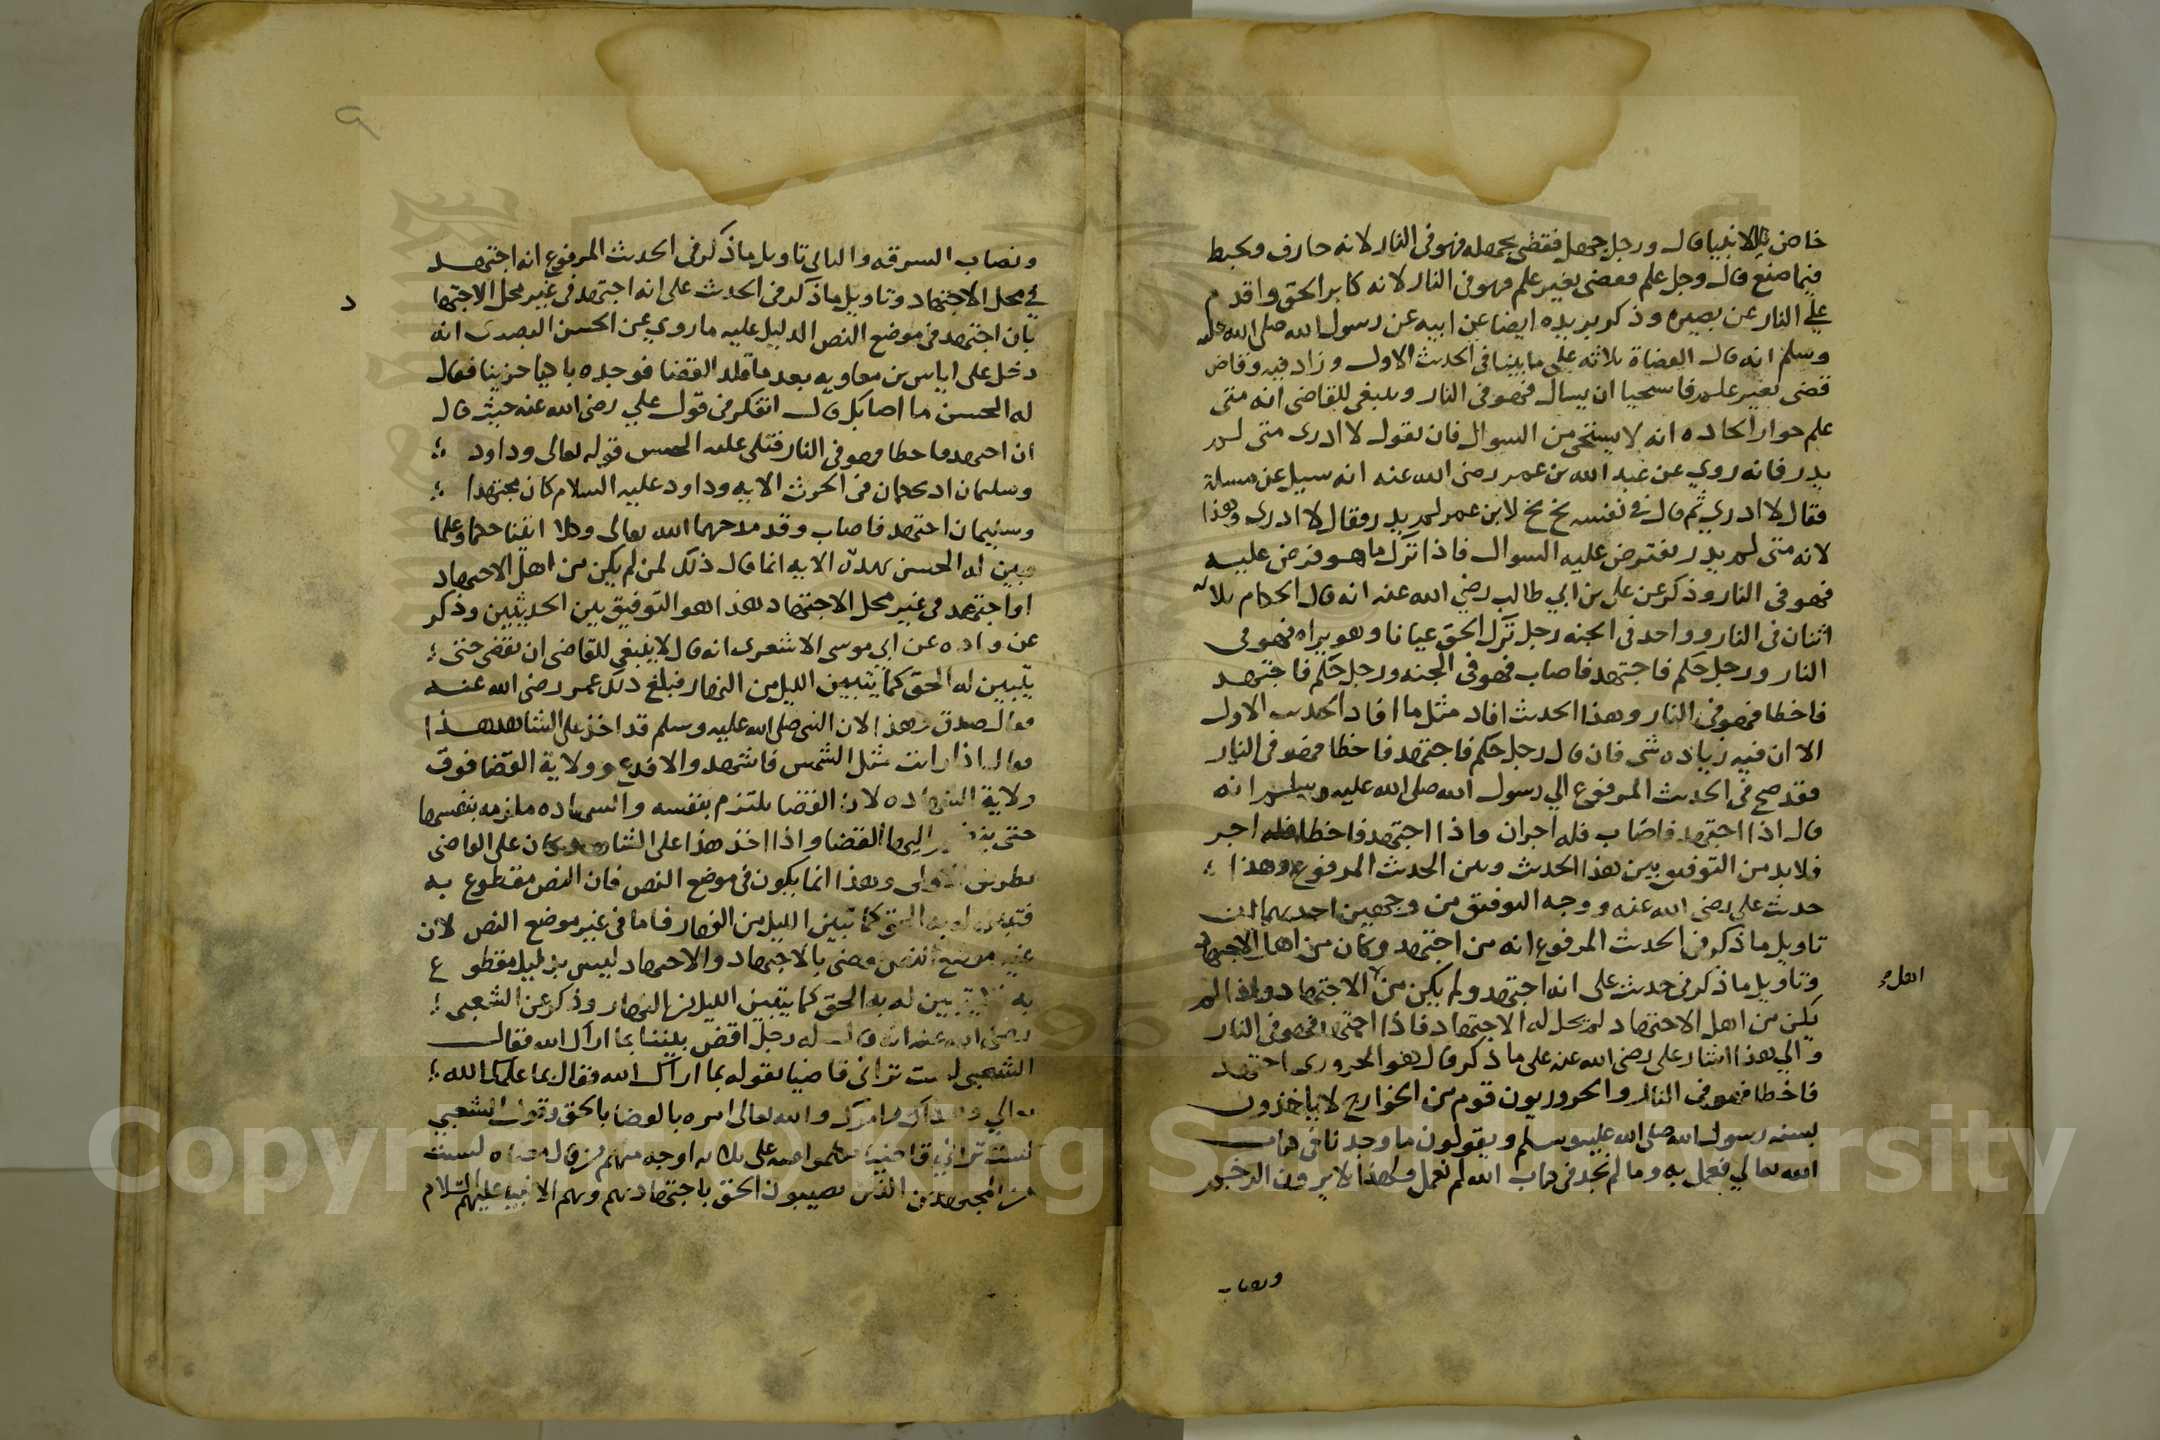 خاص بالانبيا قال ورجل جهل فقضى بجهله فهو في النار لانه حارف ومحبط
فيما صنع قال وجل علم فقضى بغير علم فهو في النار لانه كابر الحق واقدم
على النار عن بصيره وذكر بريده ايضا عن ابيه عن رسول الله صلى الله عليه
وسلم انه قال القضاة ثلاثه على ما بينا في الحديث الاول وزاد فيه وقاض
قضى بغير علم فاستحيا ان يسال فهو في النار وينبغي للقاضي انه متى
علم انه لا يستحي من السوال فان يقول لا ادرى متى لم
يدر فانه روي عن عبد الله بن عمر رضى الله عنه انه سيل عن مسلة
فقال لا ادري ثم قال في نفسه بخ بخ لابن عمر لم يدر فقال لا ادرى وهذا
لانه متى لم يدر يفترض عليه السوال فاذا ترك ما هو فرض عليه
فهو في النار وذكر عن على بن ابي طالب رضي الله عنه انه قال الحكام ثلاثه
اثنان في النار وواحد في الجنه رجل ترك الحق عيانا وهو يراه فهو في
النار ورجل حكم فاجتهد فاصاب فهو في الجنه ورجل حكم فاجتهد
فاخطا فهو في النار وهذا الحديث افاد مثل ما افاد الحديث الاول
الا ان فيه زياده شى فان قال رجل حكم فاجتهد فاخطا فهو في النار
فقد صح في الحديث المرفوع الي رسول الله صلى الله عليه وسلم انه
قال اذا اجتهد فاصاب فله اجران واذا اجتهد فاخطا فله اجر
فلابد من التوفيق بين هذا الحديث وبين الحديث المرفوع وهذا
حديث على رضى الله عنه ووجه التوفيق من وجهين احدهما ان
تاويل ما ذكر في الحديث المرفوع انه من اجتهد وكان من اهل الاجتهاد
وتاويل ما ذكر في حديث على انه اجتهد ولم يكن من الاجتهاد واذا لم
اهل
يكن من اهل الاجتهاد لم يحل له الاجتهاد فاذا اجتهد فهو في النار
والي هذا اشار على رضى الله عنه على ما ذكر قال هو الحروري اجتهد
فاخطا فهو في النار والحروريون قوم من الخوارج لا ياخذون
بسنه رسول الله صلى الله عليه وسلم ويقولون ما وجدنا في كتاب
الله تعالي فعمل به وما لم نجد في كتاب الله لم نعمل ولهذا لا يرون الرجم
ونصاب
ونصاب السرقه والثاني تاويل ما ذكر في الحديث المرفوع انه اجتهد
في محل الاجتهاد وتاويل ما ذكر في الحديث على انه اجتهد في غير محل الاجتها
د
بان اجتهد في موضع النص الدليل عليه ما روي عن الحسن البصرى انه
دخل على اياس بن معاويه بعد ما قلد القضا فوجده باكيا حزينا فقال
له الحسن ما اصابك قال اتفكر في قول علي رضى الله عنه حيث قال
ان اجتهد فاخطا فهو في النار فتلى عليه الحسن قوله تعالى وداود
وسليمان اذ يحكمان في الحرث الايه وداود عليه السلام كان مجتهدا
وسليمان اجتهد فاصاب وقد مدحهما الله تعالى وكلا اتينا حكما وعلما
وبين له الحسن بهذه الايه انما قال ذلك لمن لم يكن من اهل الاجتهاد
او اجتهد في غير محل الاجتهاد هذا هو التوفيق بين الحديثين وذكر
عن قتاده عن ابي موسى الاشعرى انه قال لا ينبغي للقاضى ان يقضى حتى
يتبين له الحق كما يتبين الليل من النهار فبلغ ذلك عمر رضى الله عنه
فقال صدق وهذا لان النبى صلى الله عليه وسلم قد اخذ على الشاهد هذا
فقال اذا رايت مثل الشمس فاشهد والا فدع وولاية القضا فوق
ولاية الشهاده لان القضا ملتزم بنفسه والشهاده ملزمه بنفسها
حتى اليها القضا واذا اخذ هذا على الشاهد كان على القاضى
بطريق الاولى وهذا انما يكون في موضع النص فان النص مقطوع به
فتبين له به الحق كما تبين الليل من النهار فاما في غير موضع النص لان
غير موضع النص يقضى بالاجتهاد والاجتهاد ليس بدليل مقطوع
به يتبين له به الحق كما يتبين الليل من النهار وذكر عن الشعبى
رضى الله عنه انه قال له رجل اقض بيننا بما اراك الله فقال
الشعبى لست ترانى قاضيا بقوله بما اراك الله فقال بما علمك الله
تعالي والله تعالى امره بالقضا بالحق وقول الشعبي
لست تراني قاضيا على ثلاثه اوجه منهم من قال معناه لست
من المجتهدين الذين يصيبون الحق باجتهادهم وهم الانبيا عليهم السلام
Copyright © King Saud University